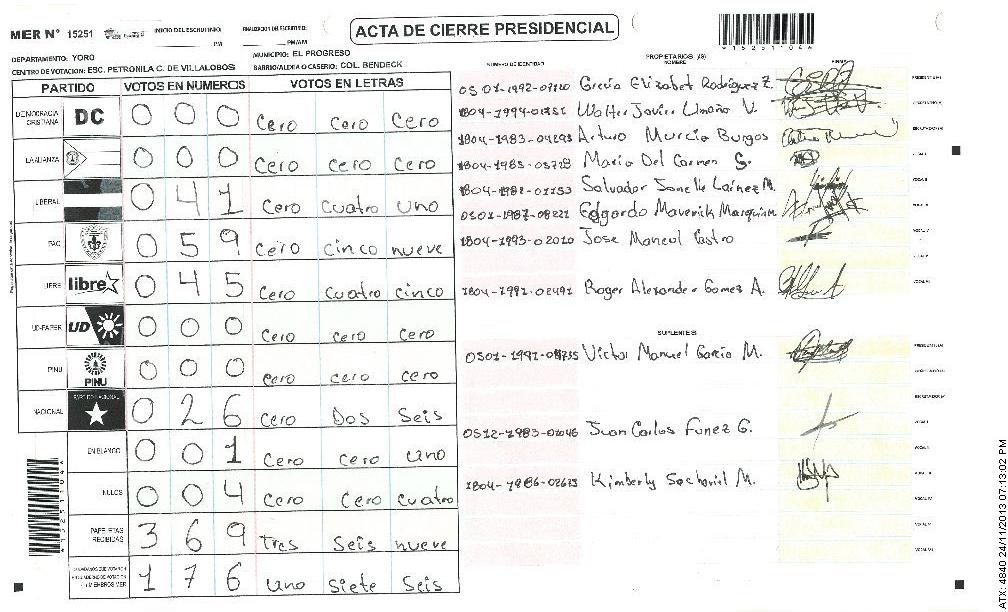 MER N° 15251
INICIO DEL ESCRUTINIO:
PM
FINALIZACION DEL ESCRUTINIO:
PM/AM
ACTA DE CIERRE PRESIDENCIAL
DEPARTAMENTO: YORO
MUNICIPIO: EL PROGRESO
CENTRO DE VOTACION: ESC. PETRONILA C. DE VILLALOBOS
BARRIO/ALDEA O CASERIO: COL. BENDECK
PARTIDO VOTOS EN NUMEROS VOTOS EN LETRAS
DEMOCRACIA CRISTIANA DC 0 0 0 Cero Cero Cero
LA ALIANZA 0 0 0 Cero cero Cero
LIBERAL 0 4 1 Cero Cuatro Uno
PAC 0 5 9 Cero cinco nueve
LIBRE libre 0 4 5 Cero Cuatro cinco
UD-FAPER UD 0 0 0 Cero Cero Cero
PINU PINU 0 0 0 Cero cero cero
NACIONAL PARTIDO NACIONAL 0 2 6 Cero Dos Seis
EN BLANCO 0 0 1 Cero Cero Uno
NULOS 0 0 4 Cero Cero cuatro
PAPELETAS RECIBIDAS 3 6 9 tres Seis nueve
1 7 6 Uno Siete Seis
NUMERO DE IDENTIDAD
PROPIETARIOS (AS)
NOMBRE
FIRMA
Elizabet Rodriguez Z.
Walter Javier Umaña V.
1804-1983-04293 Arturo Murcia Burgos
1804-1985-05728 Maria Del Carmen S.
Salvador M.
Edgardo Maverick
1804-1993-02010 Jose Manuel Castro
Roger Alexander Gomes A.
SUPLENTES
Victor Manuel Garcia M.
Juan Carlos Funez G.
Kimberly M.
ATX: 4840 24/11/2013 07:13:02 PM